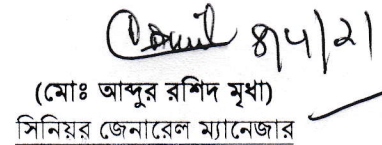 8/4/21
(মোঃ আব্দুর রশিদ মৃধা)
সিনিয়র জেনারেল ম্যানেজার